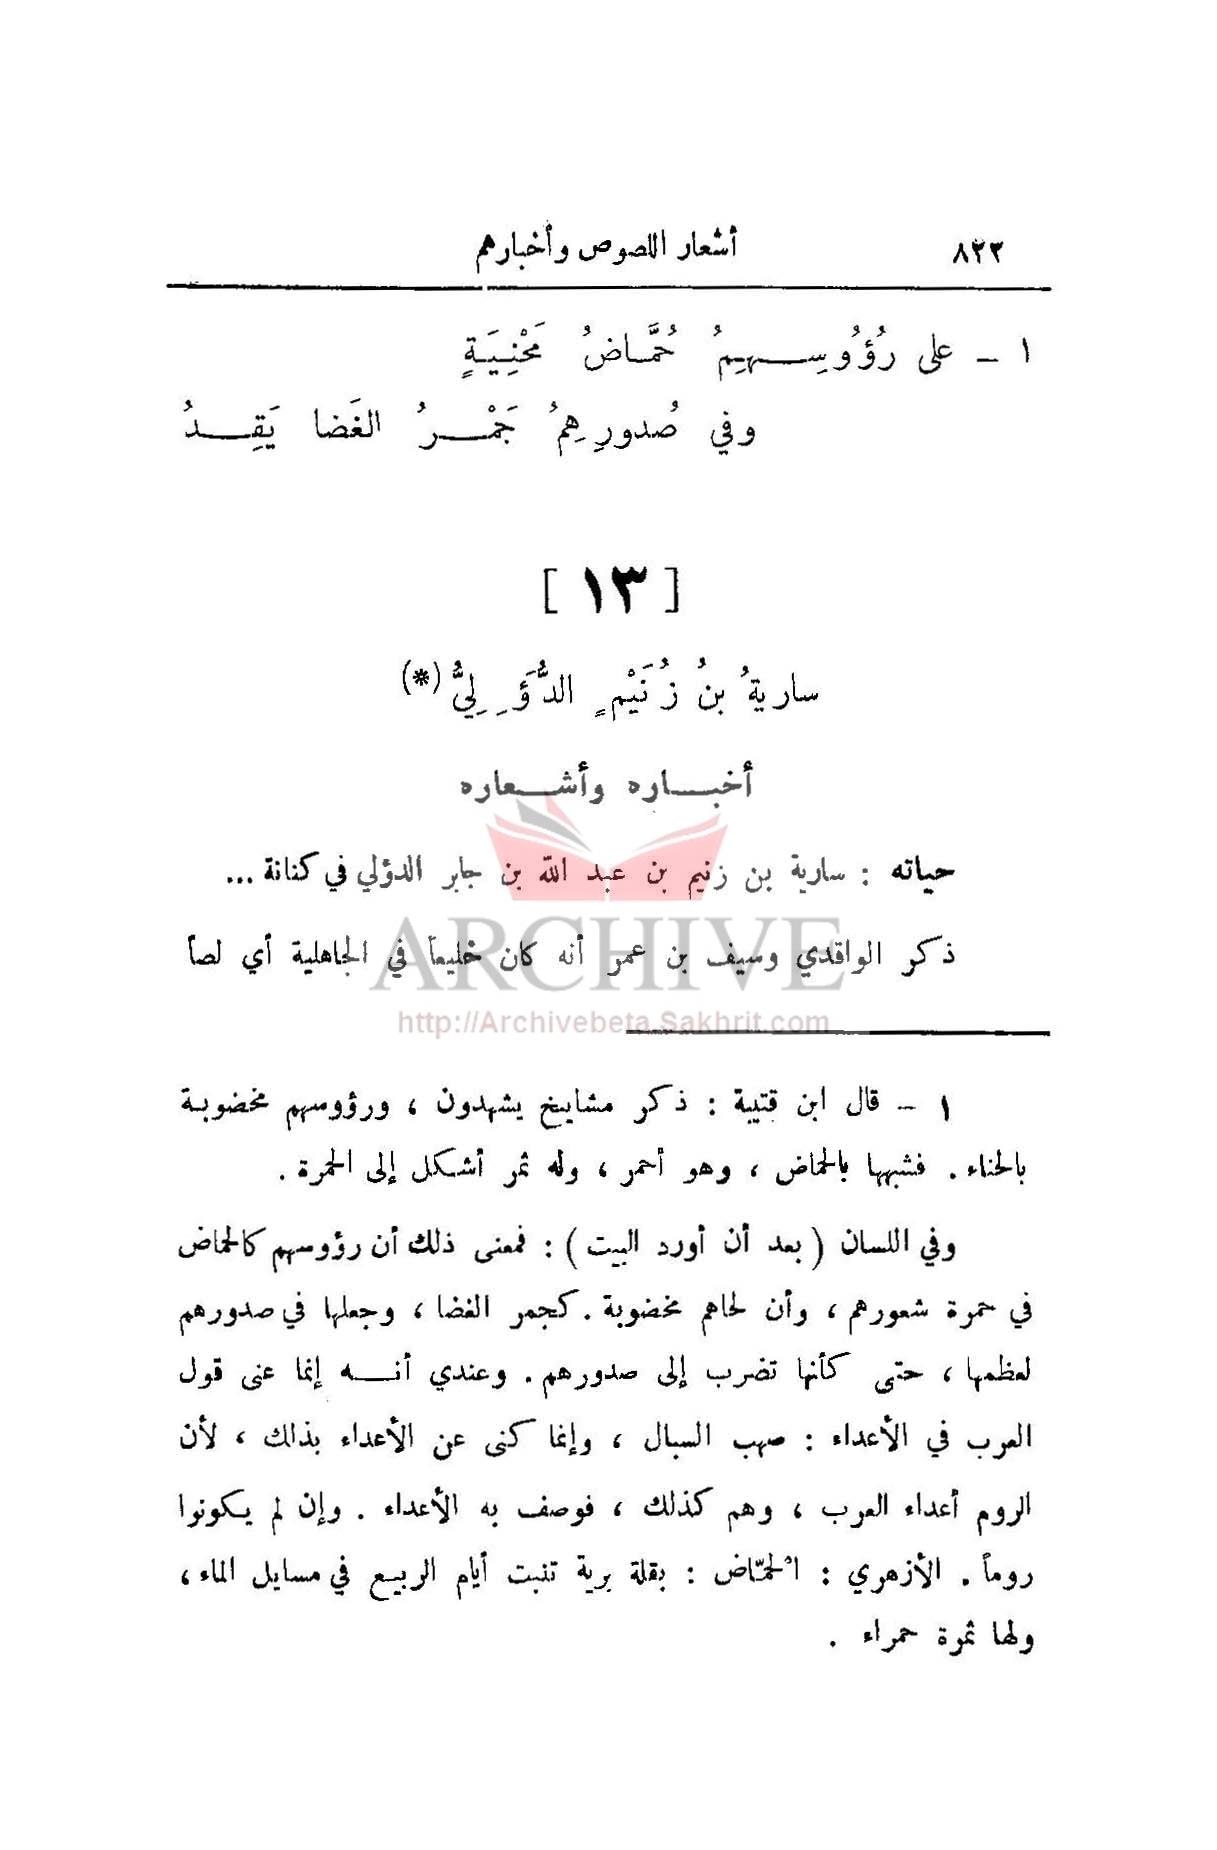 ٨٢٢ أشعار اللصوص وأخبارهم
١ ــ على رُؤُوسِـهِمُ حُمَّـاضُ مَحْنِيَـةٍ
وفي صُدورِهِمُ جَمْـرُ الغَضا يَقِـدُ
[ ١٣ ]
ساريةُ بنُ زُنَيْمٍ الدُّؤَلِيُّ (*)
أخبـاره وأشـعاره
حياته : سارية بن زنيم بن عبد الله بن جابر الدؤلي في كنانة ...
ذكر الواقدي وسيف بن عمر أنه كان خليعاً في الجاهلية أي لصاً
ARCHIVE
http://Archivebeta.Sakhrit.com
١ ــ قال ابن قتيبة : ذكر مشايخ يشهدون ، ورؤوسهم مخضوبـة
بالحناء . فشبهها بالحماض ، وهو أحمر ، وله ثمر أشكل إلى الحمرة .
وفي اللسان ( بعد أن أورد البيت ) : فمعنى ذلك أن رؤوسهم كالحماض
في حمرة شعورهم ، وأن لحاهم مخضوبة . كجمر الغضا ، وجعلها في صدورهم
لعظمها ، حتى كأنها تضرب إلى صدورهم . وعندي أنـه إنما عنى قول
العرب في الأعداء : صهب السبال ، وإنما كنى عن الأعداء بذلك ، لأن
الروم أعداء العرب ، وهم كذلك ، فوصف به الأعداء . وإن لم يكونوا
روماً . الأزهري : الحُمّاض : بقلة برية تنبت أيام الربيـع في مسايل الماء ،
ولها ثمرة حمراء .